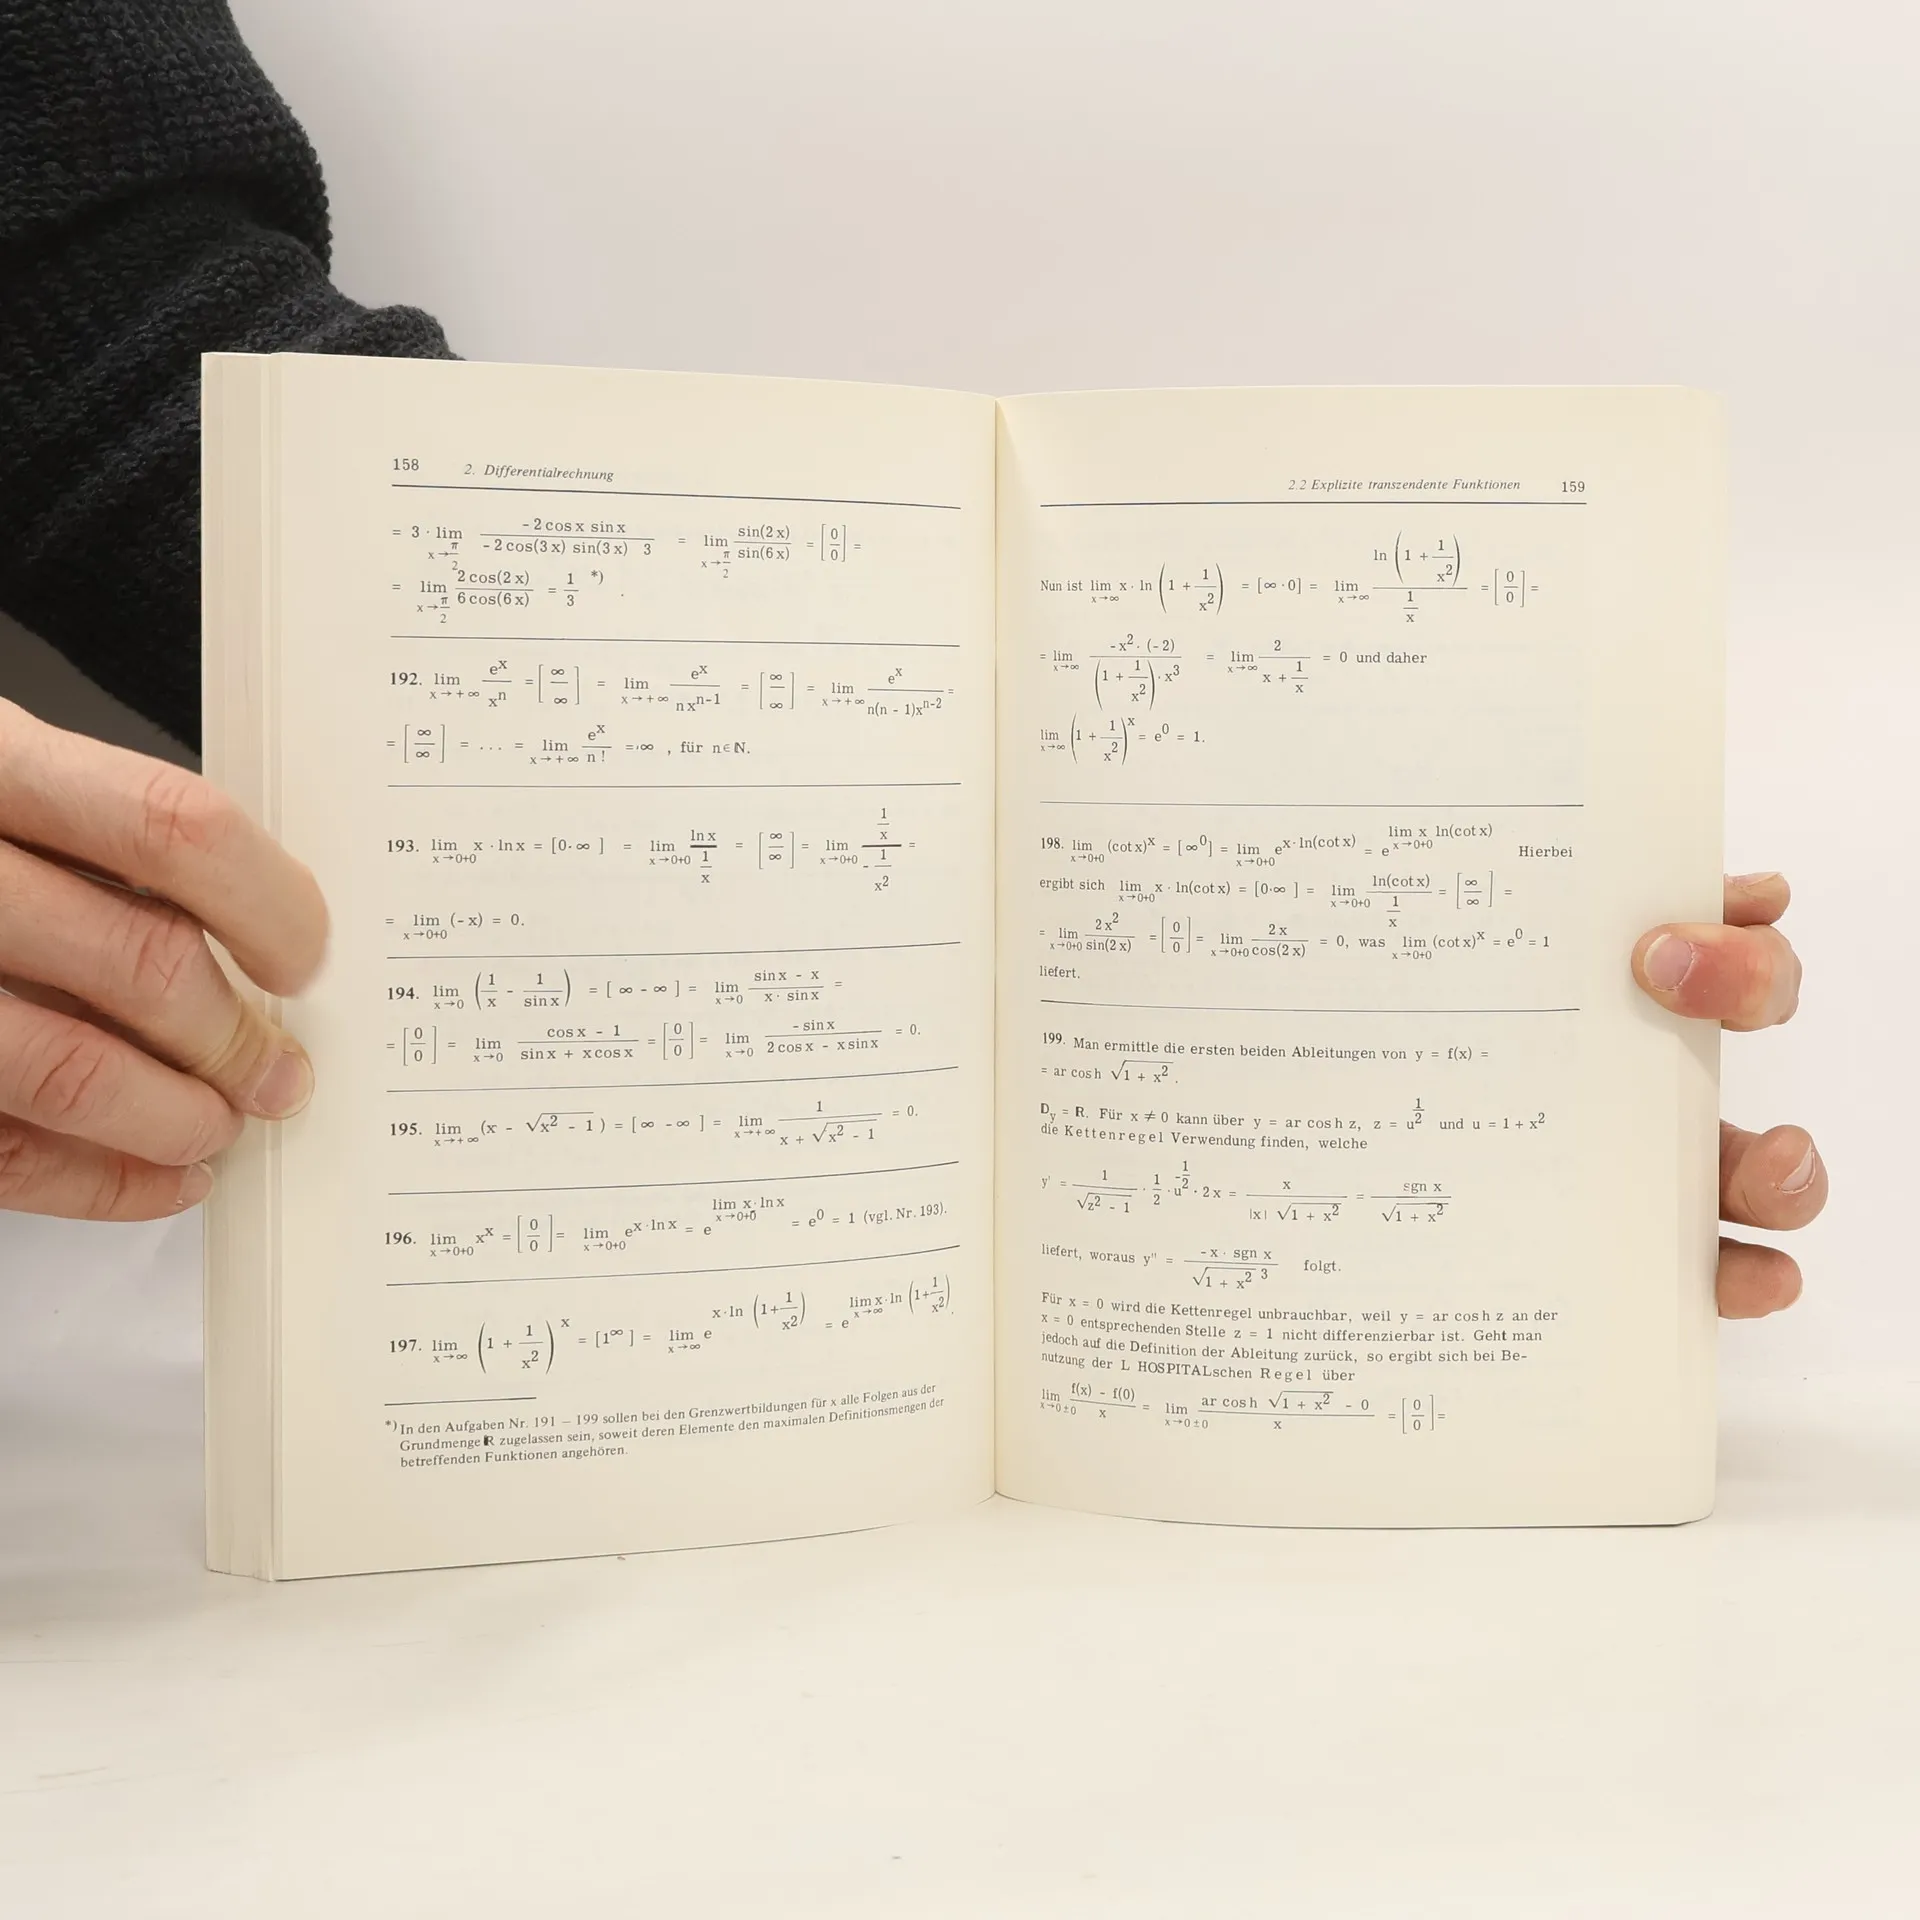 158 2. Differentialrechnung
= 3 · lim_{x→π/2} (- 2 cos x sin x)/(- 2 cos(3 x) sin(3 x) 3) = lim_{x→π/2} sin(2 x)/sin(6 x) = [0/0] =
= lim_{x→π/2} 2 cos(2 x)/6 cos(6 x) = 1/3 *) .
192. lim_{x→+∞} e^x/x^n = [∞/∞] = lim_{x→+∞} e^x/(n x^{n-1}) = [∞/∞] = lim_{x→+∞} e^x/(n(n - 1)x^{n-2}) =
= [∞/∞] = . . . = lim_{x→+∞} e^x/n ! = ∞ , für n∈ℕ.
193. lim_{x→0+0} x · ln x = [0·∞ ] = lim_{x→0+0} ln x/(1/x) = [∞/∞] = lim_{x→0+0} (1/x)/(- 1/x²) =
= lim_{x→0+0} (- x) = 0.
194. lim_{x→0} (1/x - 1/sin x) = [ ∞ - ∞ ] = lim_{x→0} (sin x - x)/(x · sin x) =
= [0/0] = lim_{x→0} (cos x - 1)/(sin x + x cos x) = [0/0] = lim_{x→0} (- sin x)/(2 cos x - x sin x) = 0.
195. lim_{x→+∞} (x - √(x² - 1)) = [ ∞ - ∞ ] = lim_{x→+∞} 1/(x + √(x² - 1)) = 0.
196. lim_{x→0+0} x^x = [0/0] = lim_{x→0+0} e^{x·ln x} = e^{lim_{x→0+0} x·ln x} = e^0 = 1 (vgl. Nr. 193).
197. lim_{x→∞} (1 + 1/x²)^x = [1^∞ ] = lim_{x→∞} e^{x·ln (1+1/x²)} = e^{lim_{x→∞} x·ln (1+1/x²)} .
*) In den Aufgaben Nr. 191 – 199 sollen bei den Grenzwertbildungen für x alle Folgen aus der
Grundmenge ℝ zugelassen sein, soweit deren Elemente den maximalen Definitionsmengen der
betreffenden Funktionen angehören.
2.2 Explizite transzendente Funktionen 159
Nun ist lim_{x→∞} x · ln (1 + 1/x²) = [∞ ·0] = lim_{x→∞} ln (1 + 1/x²)/(1/x) = [0/0] =
= lim_{x→∞} (-x² · (- 2))/((1 + 1/x²) · x³) = lim_{x→∞} 2/(x + 1/x) = 0 und daher
lim_{x→∞} (1 + 1/x²)^x = e^0 = 1.
198. lim_{x→0+0} (cot x)^x = [∞^0] = lim_{x→0+0} e^{x·ln(cot x)} = e^{lim_{x→0+0} x ln(cot x)} Hierbei
ergibt sich lim_{x→0+0} x · ln(cot x) = [0·∞ ] = lim_{x→0+0} ln(cot x)/(1/x) = [∞/∞] =
= lim_{x→0+0} 2 x²/sin(2 x) = [0/0] = lim_{x→0+0} 2 x/cos(2 x) = 0, was lim_{x→0+0} (cot x)^x = e^0 = 1
liefert.
199. Man ermittle die ersten beiden Ableitungen von y = f(x) =
= ar cosh √(1 + x²) .
D_y = R. Für x ≠ 0 kann über y = ar cosh z, z = u^{1/2} und u = 1 + x²
die Kettenregel Verwendung finden, welche
y' = 1/√(z² - 1) · 1/2 · u^{-1/2} · 2 x = x/(|x| √(1 + x²)) = sgn x/√(1 + x²)
liefert, woraus y'' = (- x · sgn x)/√(1 + x²)³ folgt.
Für x = 0 wird die Kettenregel unbrauchbar, weil y = ar cosh z an der
x = 0 entsprechenden Stelle z = 1 nicht differenzierbar ist. Geht man
jedoch auf die Definition der Ableitung zurück, so ergibt sich bei Be-
nutzung der L HOSPITALschen Regel über
lim_{x→0±0} (f(x) - f(0))/x = lim_{x→0±0} (ar cosh √(1 + x²) - 0)/x = [0/0] =